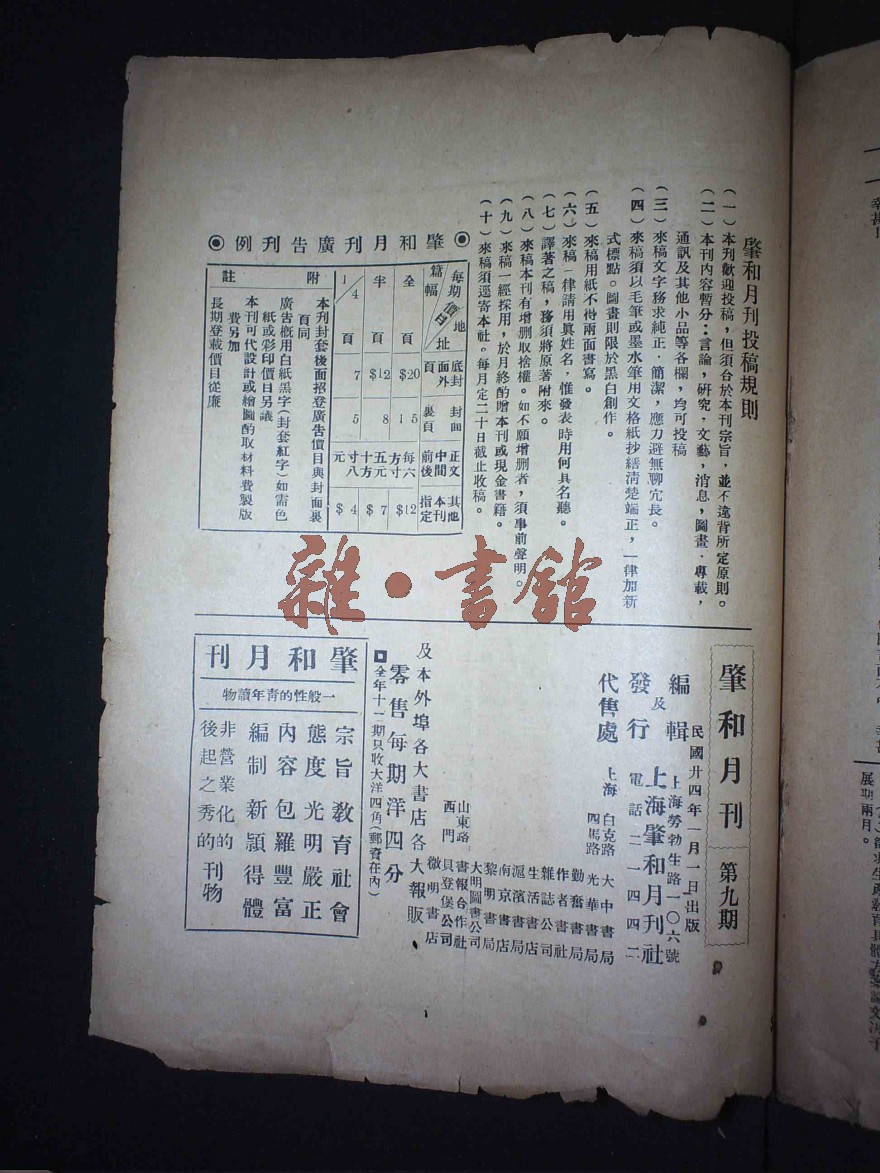 肇和月刊投稿規則
(一)本刊歡迎投稿，但須合於本刊宗旨，並不違背所定原則。
(二)本刊內容暫分：言論，研究，文藝，消息，圖畫，專載，
通訊及其他小品等各欄，均可投稿
(三)來稿文字務求純正，簡潔，應力避無聊冗長。
(四)來稿須以毛筆或墨水筆用文格紙抄繕清楚端正，一律加新
式標點。圖畫則限於黑白創作。
(五)來稿用紙不得兩面書寫。
(六)來稿一律請用眞姓名，惟發表時用何具名聽。
(七)譯著之稿，務須將原著附來。
(八)來稿本刊有增删取捨權。如不願增删者，須事前聲明。
(九)來稿一經採用，於月終酌贈本刊或現金書籍。
(十)來稿須逕寄本社。每月定二十日截止收稿。
肇和月刊廣告刊例
每期價目 地址 篇幅
底封面外頁
封面裏頁
正文中間前後
其他本刊指定
全頁 $20 15 每六方寸五元十方寸八元 $12
半頁 $12 8 $7
1/4頁 7 5 $4
附註
本刋封套後面招登廣告價目與封面裏
頁同
廣告概用白紙黑字(封套紅字)如需色
紙或彩印價目另議
本刊可代設計或繪圖酌取材料費製版
費另加
長期登載價目從廉
肇和月刊 第九期
民國廿四年一月一日出版
編輯及發行
上海勞勃生路一〇六號
上海肇和月刊社
電話二一四四二
代售處
上海 白克路 大中書局
四馬路 光華書局
勤奮書局
作者書社
雜誌公司
生活書店
滬濱書局
南京書店
黎明書局
大明圖書公司
山東路 書報合作社
西門 貝登堡公司
微明書店
及本外埠各大書店各大報販
零售每期洋四分
全年十二期只收大洋四角(郵資在內)
肇和月刊
一般性的青年讀物
宗旨教育社會
態度光明嚴正
內容包羅豐富
編制新穎得體
非營業化的
後起之秀的刊物
雜·書館
展期兩月。